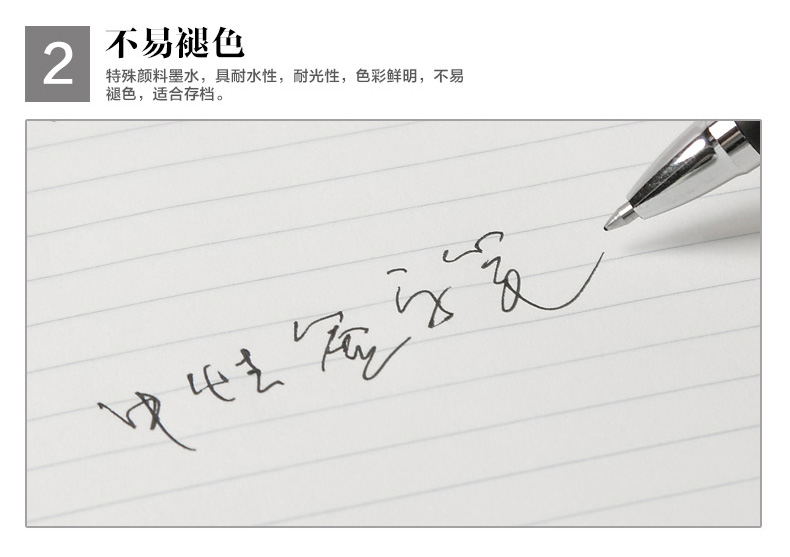 2
不易褪色
特殊颜料墨水，具耐水性，耐光性，色彩鲜明，不易
褪色，适合存档。
中性